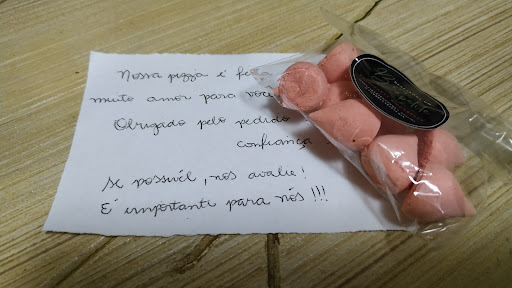 Nossa pizza é
muito amor para você
Obrigado pelo pedido
confiança
Se possível, nos avalie!
É importante para nós!!!